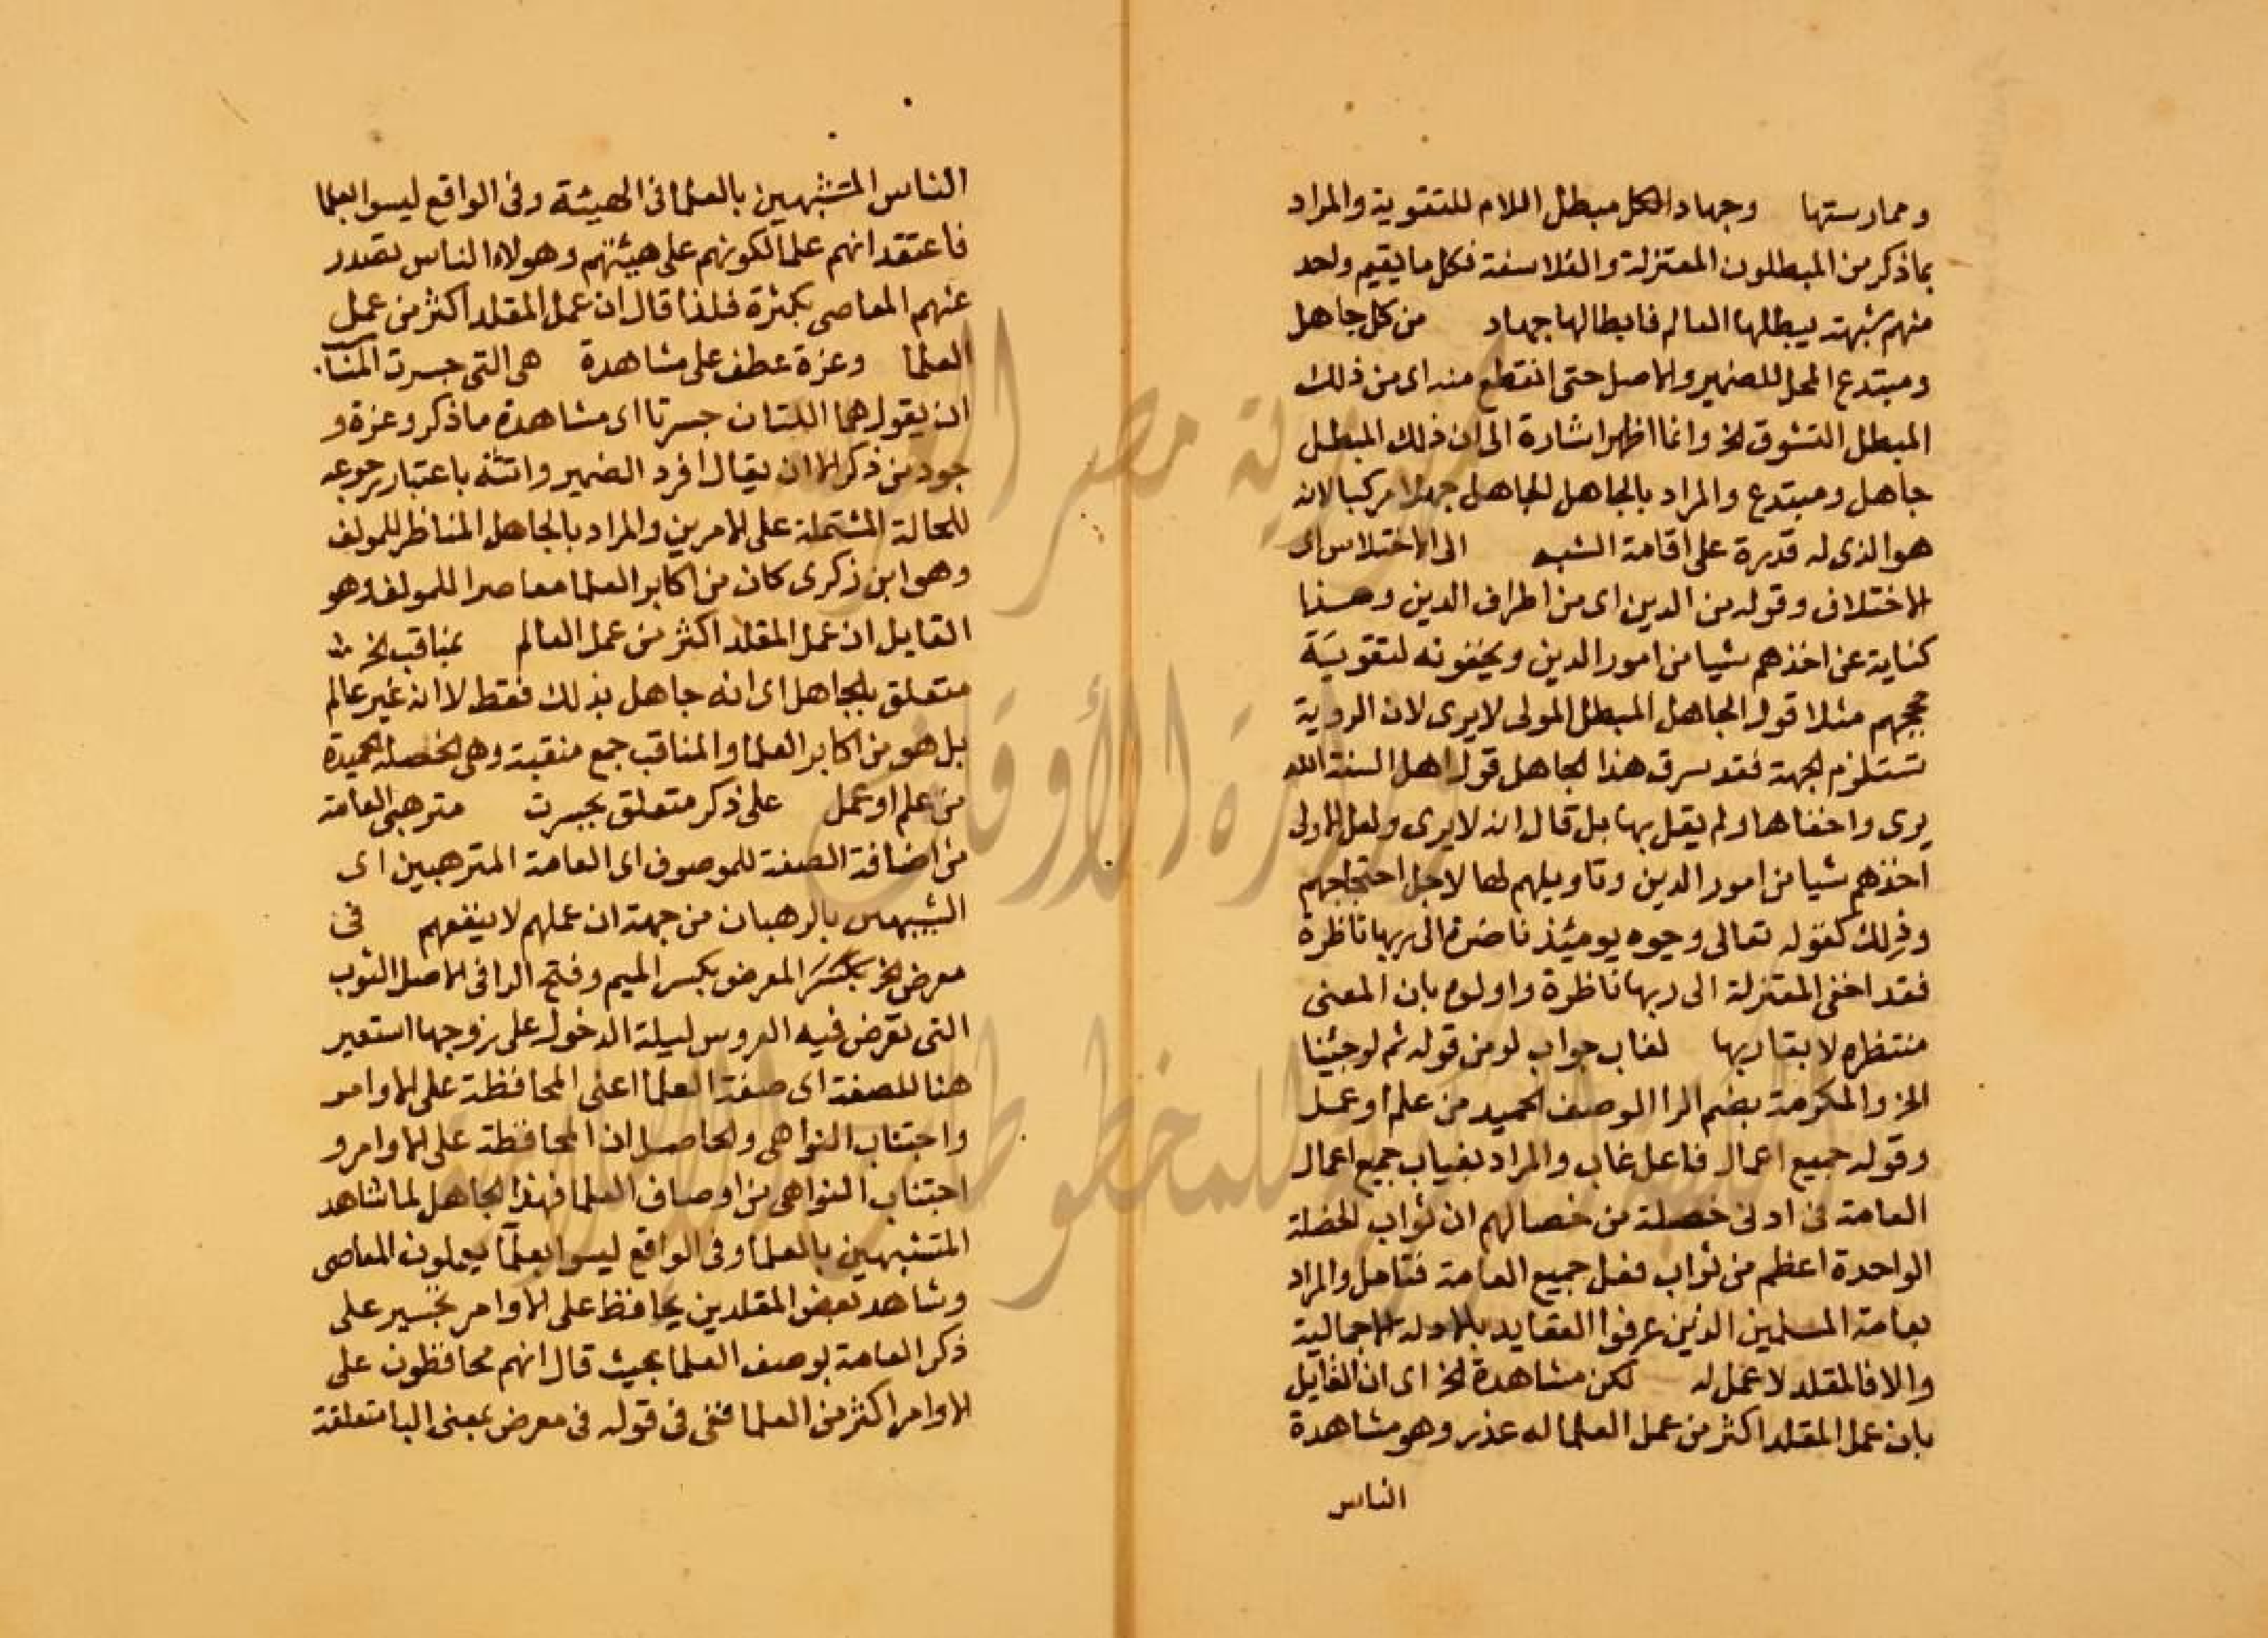 وممارستها وجهاد لكل مبطل اللام للتقوية والمراد
بما ذكر من المبطلون المعتزلة والفلاسفة فكل ما يقيم واحد
منهم شبهة يبطلها العالم فابطالها جهاد من كل جاهل
ومبتدع المحل للضمير والاصل حتى انقطع منه اى من ذلك
المبطل التشوق الخ وانما اظهر اشارة الى ان ذلك المبطل
جاهل ومبتدع والمراد بالجاهل الجاهل جهلا مركبا لانه
هو الذى له قدرة على اقامة الشبه الى الاختلاس اى
الاختلاف وقوله من الدين اى من اطراف الدين وهذا
كناية عن اخذهم شيا من امور الدين ويخفونه لتقوية
حججهم مثلا قول الجاهل المبطل المولى لا يرى لان الروية
تستلزم الجهة فقد سرق هذا الجاهل قول اهل السنة الله
يرى واخفاها ولم يقل بها بل قال انه لا يرى ولعل الاولى
اخذهم شيا من امور الدين وتاويلهم لها لاجل احتجاجهم
وذلك كقوله تعالى وجوه يومئذ ناضرة الى ربها ناظرة
فقد اخفى المعتزلة الى ربها ناظرة واولوه بان المعنى
منتظره لابقا ربها لغاب جواب لو من قوله ثم لو جئنا
الخ والمكرمة بضم الرا الوصف الحميد من علم او عمل
وقوله جميع اعمال فاعل غاب والمراد بغياب جميع اعمال
العامة فى ادنى خصلة من خصالهم ان ثواب الخصلة
الواحدة اعظم من ثواب فعل جميع العامة فتامل والمراد
بعامة المسلمين الذين عرفوا العقايد بالادلة الاجمالية
والا فالمقلد لا عمل له لكن مشاهدة الخ اى ان القايل
بان عمل المقلد اكثر من عمل العلما له عذر وهو مشاهدة
الناس
الناس المتشبهين بالعلما فى الهيئة وفى الواقع ليسوا بعلما
فاعتقد انهم علما لكونهم على هيئتهم وهولاء الناس تصدر
عنهم المعاصى بكثرة فلذا قال ان عمل المقلد اكثر من عمل
العلما وعزة عطف على مشاهدة هى التى جسرت المناسب
ان يقول هما اللتان جسرتا اى مشاهدة ما ذكر وعزة و
جود من ذكر الا ان يقال افرد الضمير وانثه باعتبار رجوعه
للحالة المشتملة على الامرين والمراد بالجاهل المناظر للمولف
وهو ابن زكرى كان من اكابر العلما معاصرا للمولف وهو
القايل ان عمل المقلد اكثر من عمل العالم بمناقب الخ
متعلق بالجاهل اى انه جاهل بذلك فقط لا انه غير عالم
بل هو من اكابر العلما والمناقب جمع منقبة وهى الخصلة الحميدة
من علم او عمل على ذكر متعلق بجسرت مترهبى العامة
من اضافة الصفة للموصوف اى العامة المترهبين اى
الشبيهين بالرهبان من جهة ان عملهم لا ينفعهم فى
معرض الخ المعرض بكسر الميم وفتح الرا فى الاصل الثوب
التى تعرض فيه العروس ليلة الدخول على زوجها استعير
هنا للصفة اى صفة العلما اعنى المحافظة على الاوامر
واجتناب النواهى والحاصل ان المحافظة على الاوامر و
اجتناب النواهى من اوصاف العلما فهذا الجاهل لما شاهد
المتشبهين بالعلما وفى الواقع ليسوا بعلما يعملون المعاصى
وشاهد بعض المقلدين يحافظ على الاوامر تجسير على
ذكر العامة بوصف العلما بحيث قال انهم محافظون على
الاوامر اكثر من العلما ففى فى قوله فى معرض بمعنى البا متعلقة
جمهورية مصر العربية
وزارة الأوقاف